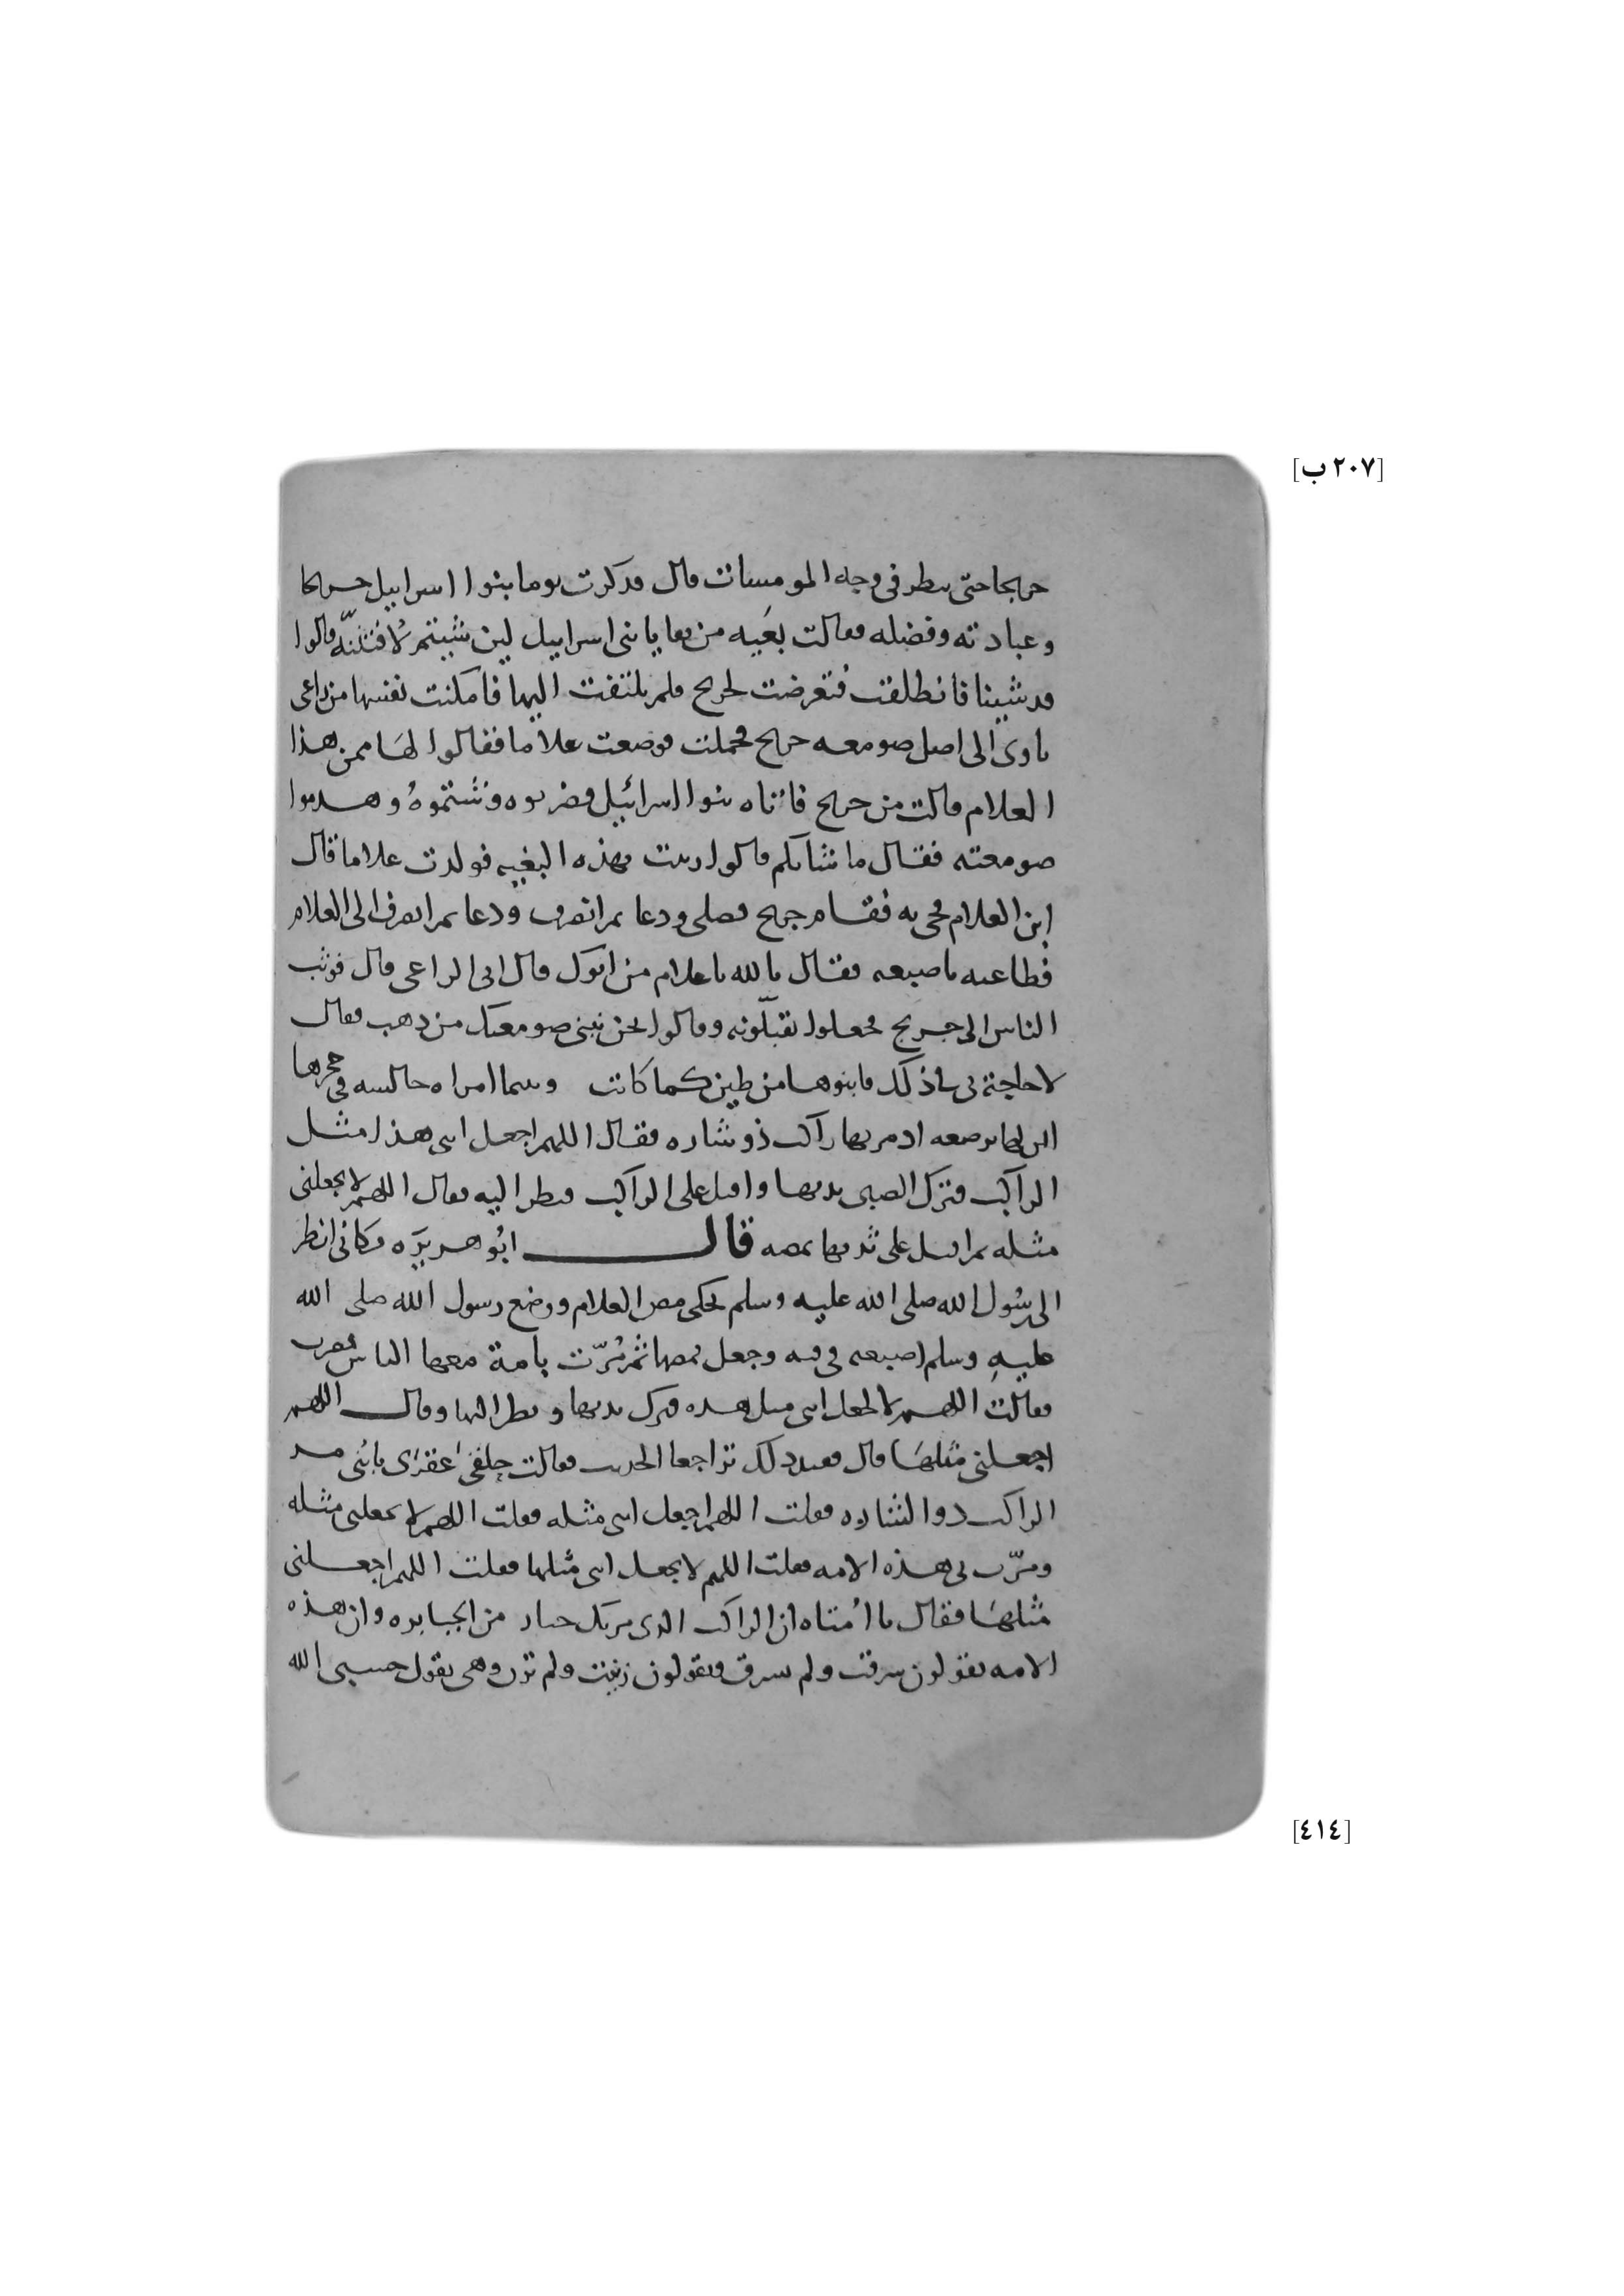 [٢٠٧ ب]
جريجا حتى ينظر في وجه المومسات قال فذكرت يوما بنوا اسراييل جريجا
وعبادته وفضله فقالت بغيه من بغايا بنى اسراييل لين شيتم لافتننّه قالوا
قد شينا فانطلقت فتعرضت لجريج فلم يلتفت اليها فامكنت نفسها من راعى
ياوى الى اصل صومعه جريج فحملت فوضعت غلاما فقالوا لها ممن هذا
الغلام قالت من جريج فأتاه بنوا اسرائيل فضربوه وشتموهُ وهدموا
صومعته فقال ما شانكم قالوا زنيت بهذه البغيه فولدت غلاما قال
اين الغلام فجى به فقام جريج فصلى ودعا ثم انصرف ودعا ثم انصرف الى الغلام
فطاعنه باصبعه فقال بالله يا غلام من ابوك قال ابن الراعى قال فوثب
الناس الى جريج فجعلوا يقبلّونه وقالوا نحن نبنى صومعتك من ذهب فقال
لا حاجة لى فى ذلك فابنوها من طين كما كانت وبينما امراه جالسه فى حجرها
ابن لها ترضعه اذ مر بها راكب ذو شاره فقال اللهم اجعل ابنى هذا مثل
الراكب فترك الصبى ثديها واقبل على الراكب فنظر اليه فقال اللهم لا تجعلنى
مثله ثم اقبل على ثديها يمصه قال ابُو هريرَه فكانى انظر
الى رسُول الله صلى الله عليه وسلم يحكى مص الغلام ووضع رسول الله صلى الله
عليهِ وسلم اصبعه فى فيه وجعل يمصها ثم مُرّت بامة معها الناس تضرب
فقالت اللهم لا تجعل ابنى مثل هذه فترك ثديها ونظر اليها وقال اللهم
اجعلنى مثلها قال فعند ذلك تراجعا الحديث فقالت حلقىٰ عقرٰى يا بُنى مر
الراكب ذوا الشاره فقلت اللهم اجعل ابنى مثله فقلت اللهم لا تجعلنى مثله
ومرّت بى هذه الامه فقلت اللهم لا تجعل ابنى مثلها فقلت اللهم اجعلنى
مثلها فقال يا اُمّتاه ان الراكب الذى مر بك جبار من الجبابره وان هذه
الامه يقولون سرقت ولم تسرق ويقولون زنيت ولم تزن وهى تقول حسبى الله
[٤١٤]